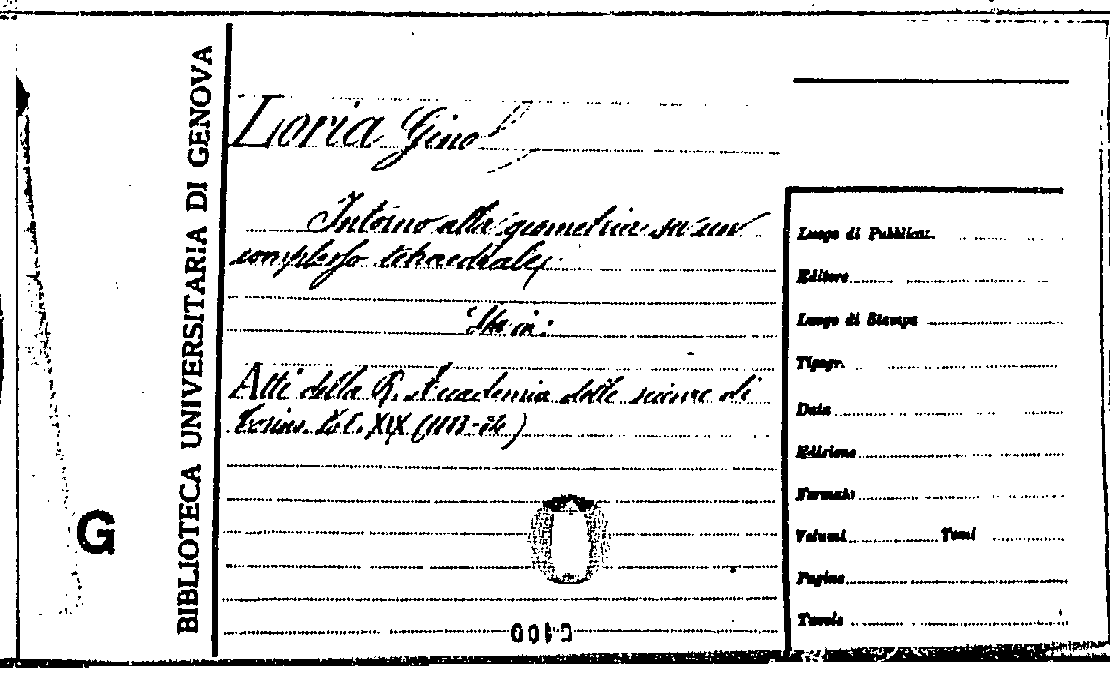 BIBLIOTECA UNIVERSITARIA DI GENOVA
G
Loria Gino
Intorno alla geometria su un
complesso tetraedrale
Sta in:
Atti della R. Accademia delle scienze di
Torino. Vol. XIX (1883-84)
Luogo di Pubblicaz.
Editore
Luogo di Stampa
Tipogr.
Data
Edizione
Formato
Volumi Tomi
Pagine
Tavole